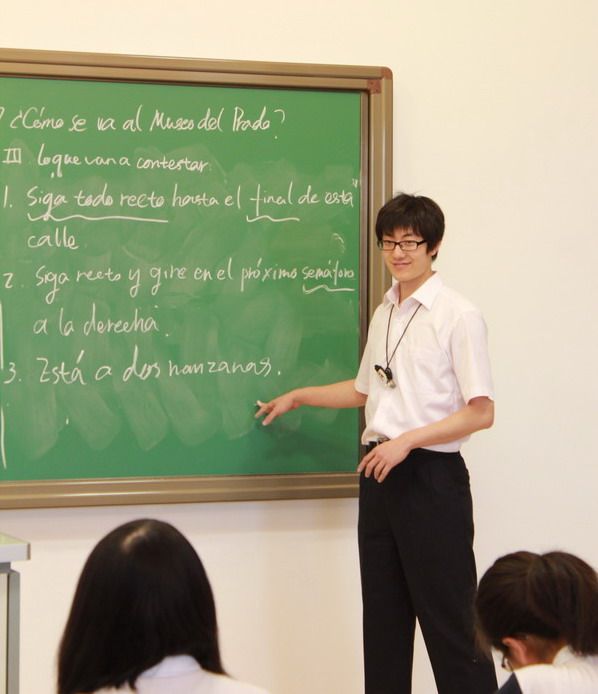 ? ¿Cómo se va al Museo del Prado?
III loque van a contestar:
1. Siga todo recto hasta el final de está
calle.
2. Siga recto y gire en el próximo semáforo
a la derecha.
3. Está a dos manzanas.